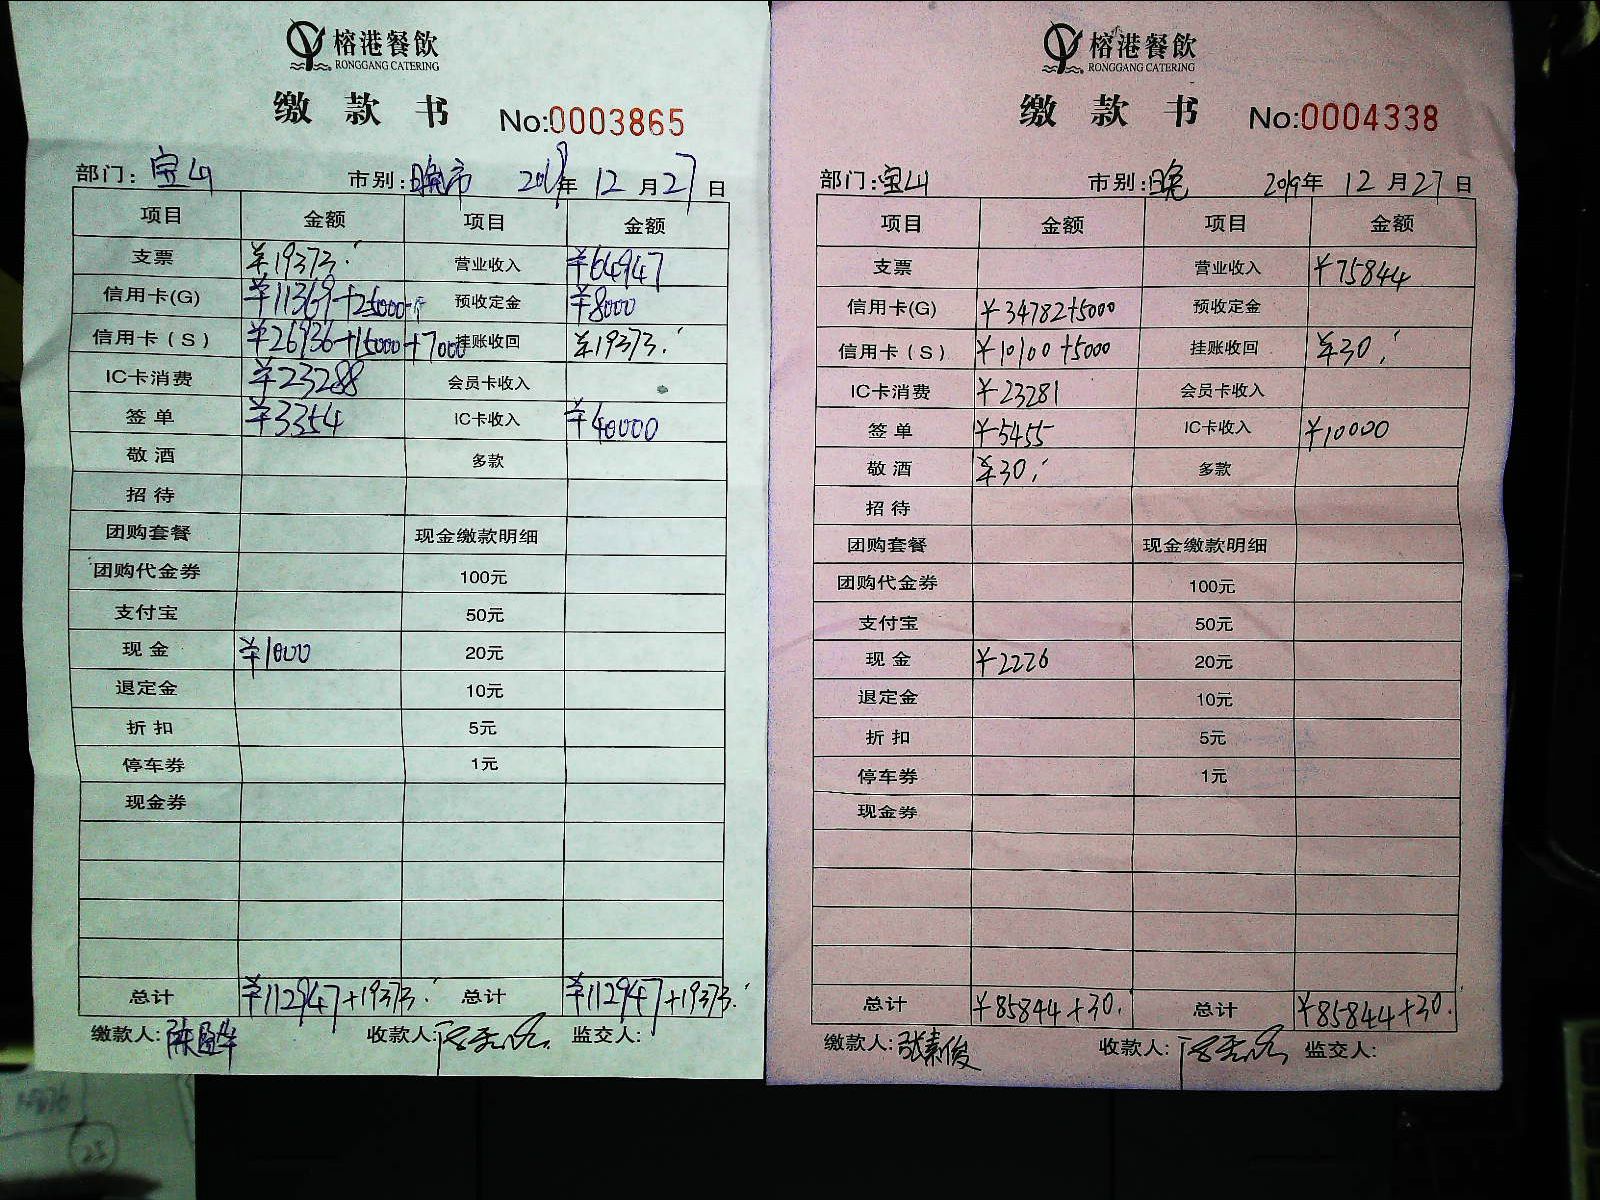 榕港餐饮
RONGGANG CATERING
缴款书 No:0003865
部门：宝山 市别：晚市 2019年12月27日
项目 金额 项目 金额
支票 ¥19373. 营业收入 ¥64947
信用卡(G) ¥11369+25000 预收定金 ¥8000
信用卡（S） ¥26936+15000+7000 挂账收回 ¥19373.
IC卡消费 ¥23288 会员卡收入
签单 ¥3354 IC卡收入 ¥40000
敬酒 多款
招待
团购套餐 现金缴款明细
团购代金券 100元
支付宝 50元
现金 ¥1000 20元
退定金 10元
折扣 5元
停车券 1元
现金券
总计 ¥112947+19373. 总计 ¥112947+19373.
缴款人: 收款人: 监交人:
榕港餐饮
RONGGANG CATERING
缴款书 No:0004338
部门:宝山 市别:晚 2019年12月27日
项目 金额 项目 金额
支票 营业收入 ¥75844
信用卡(G) ¥34782+5000 预收定金
信用卡（S） ¥10100+5000 挂账收回 ¥30.
IC卡消费 ¥23281 会员卡收入
签单 ¥5455 IC卡收入 ¥10000
敬酒 ¥30. 多款
招待
团购套餐 现金缴款明细
团购代金券 100元
支付宝 50元
现金 ¥2226 20元
退定金 10元
折扣 5元
停车券 1元
现金券
总计 ¥85844+30. 总计 ¥85844+30.
缴款人:张素俊 收款人: 监交人:
25